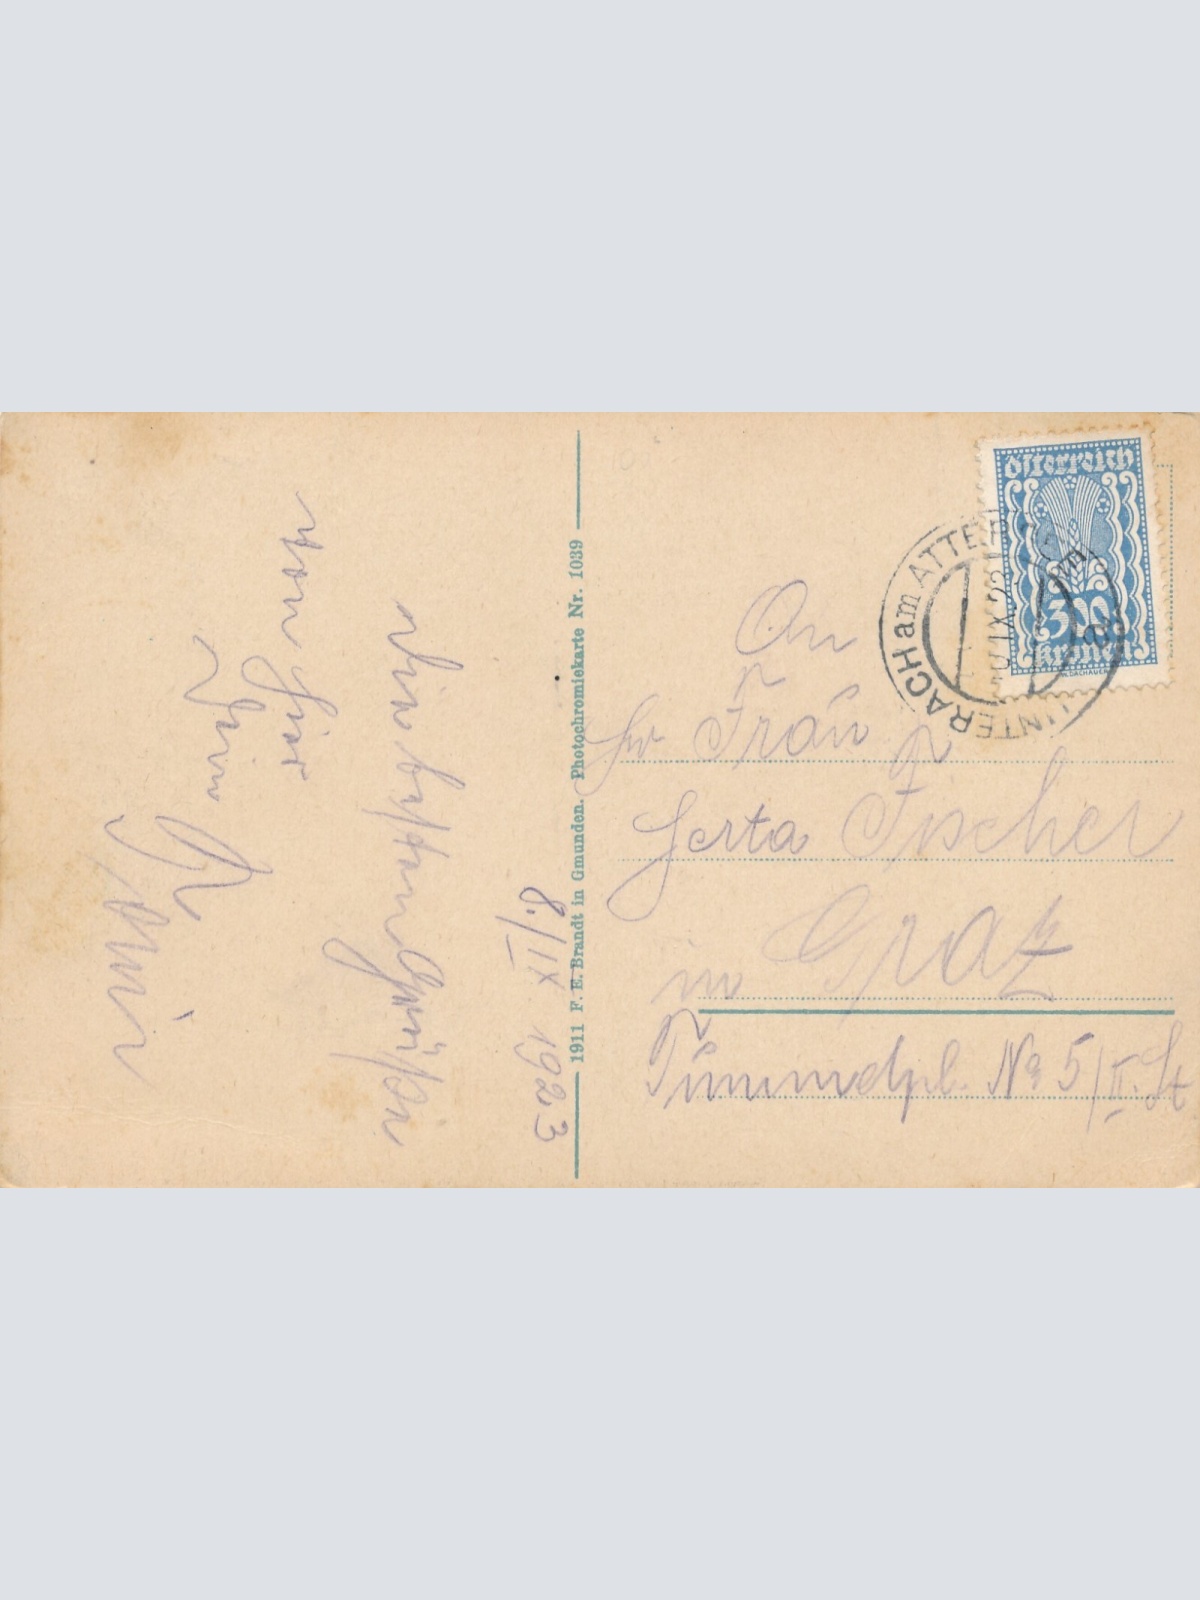 8./IX 1923
Die besten Grüße
von hier
Dein
1911 F. E. Brandt in Gmunden. Photochromiekarte Nr. 1039
österreich
300
kronen
W. DACHAUER
UNTERACH am ATTERSEE
An
Frau
Herta Fischer
in Graz
Tummelpl. No 5/II. St